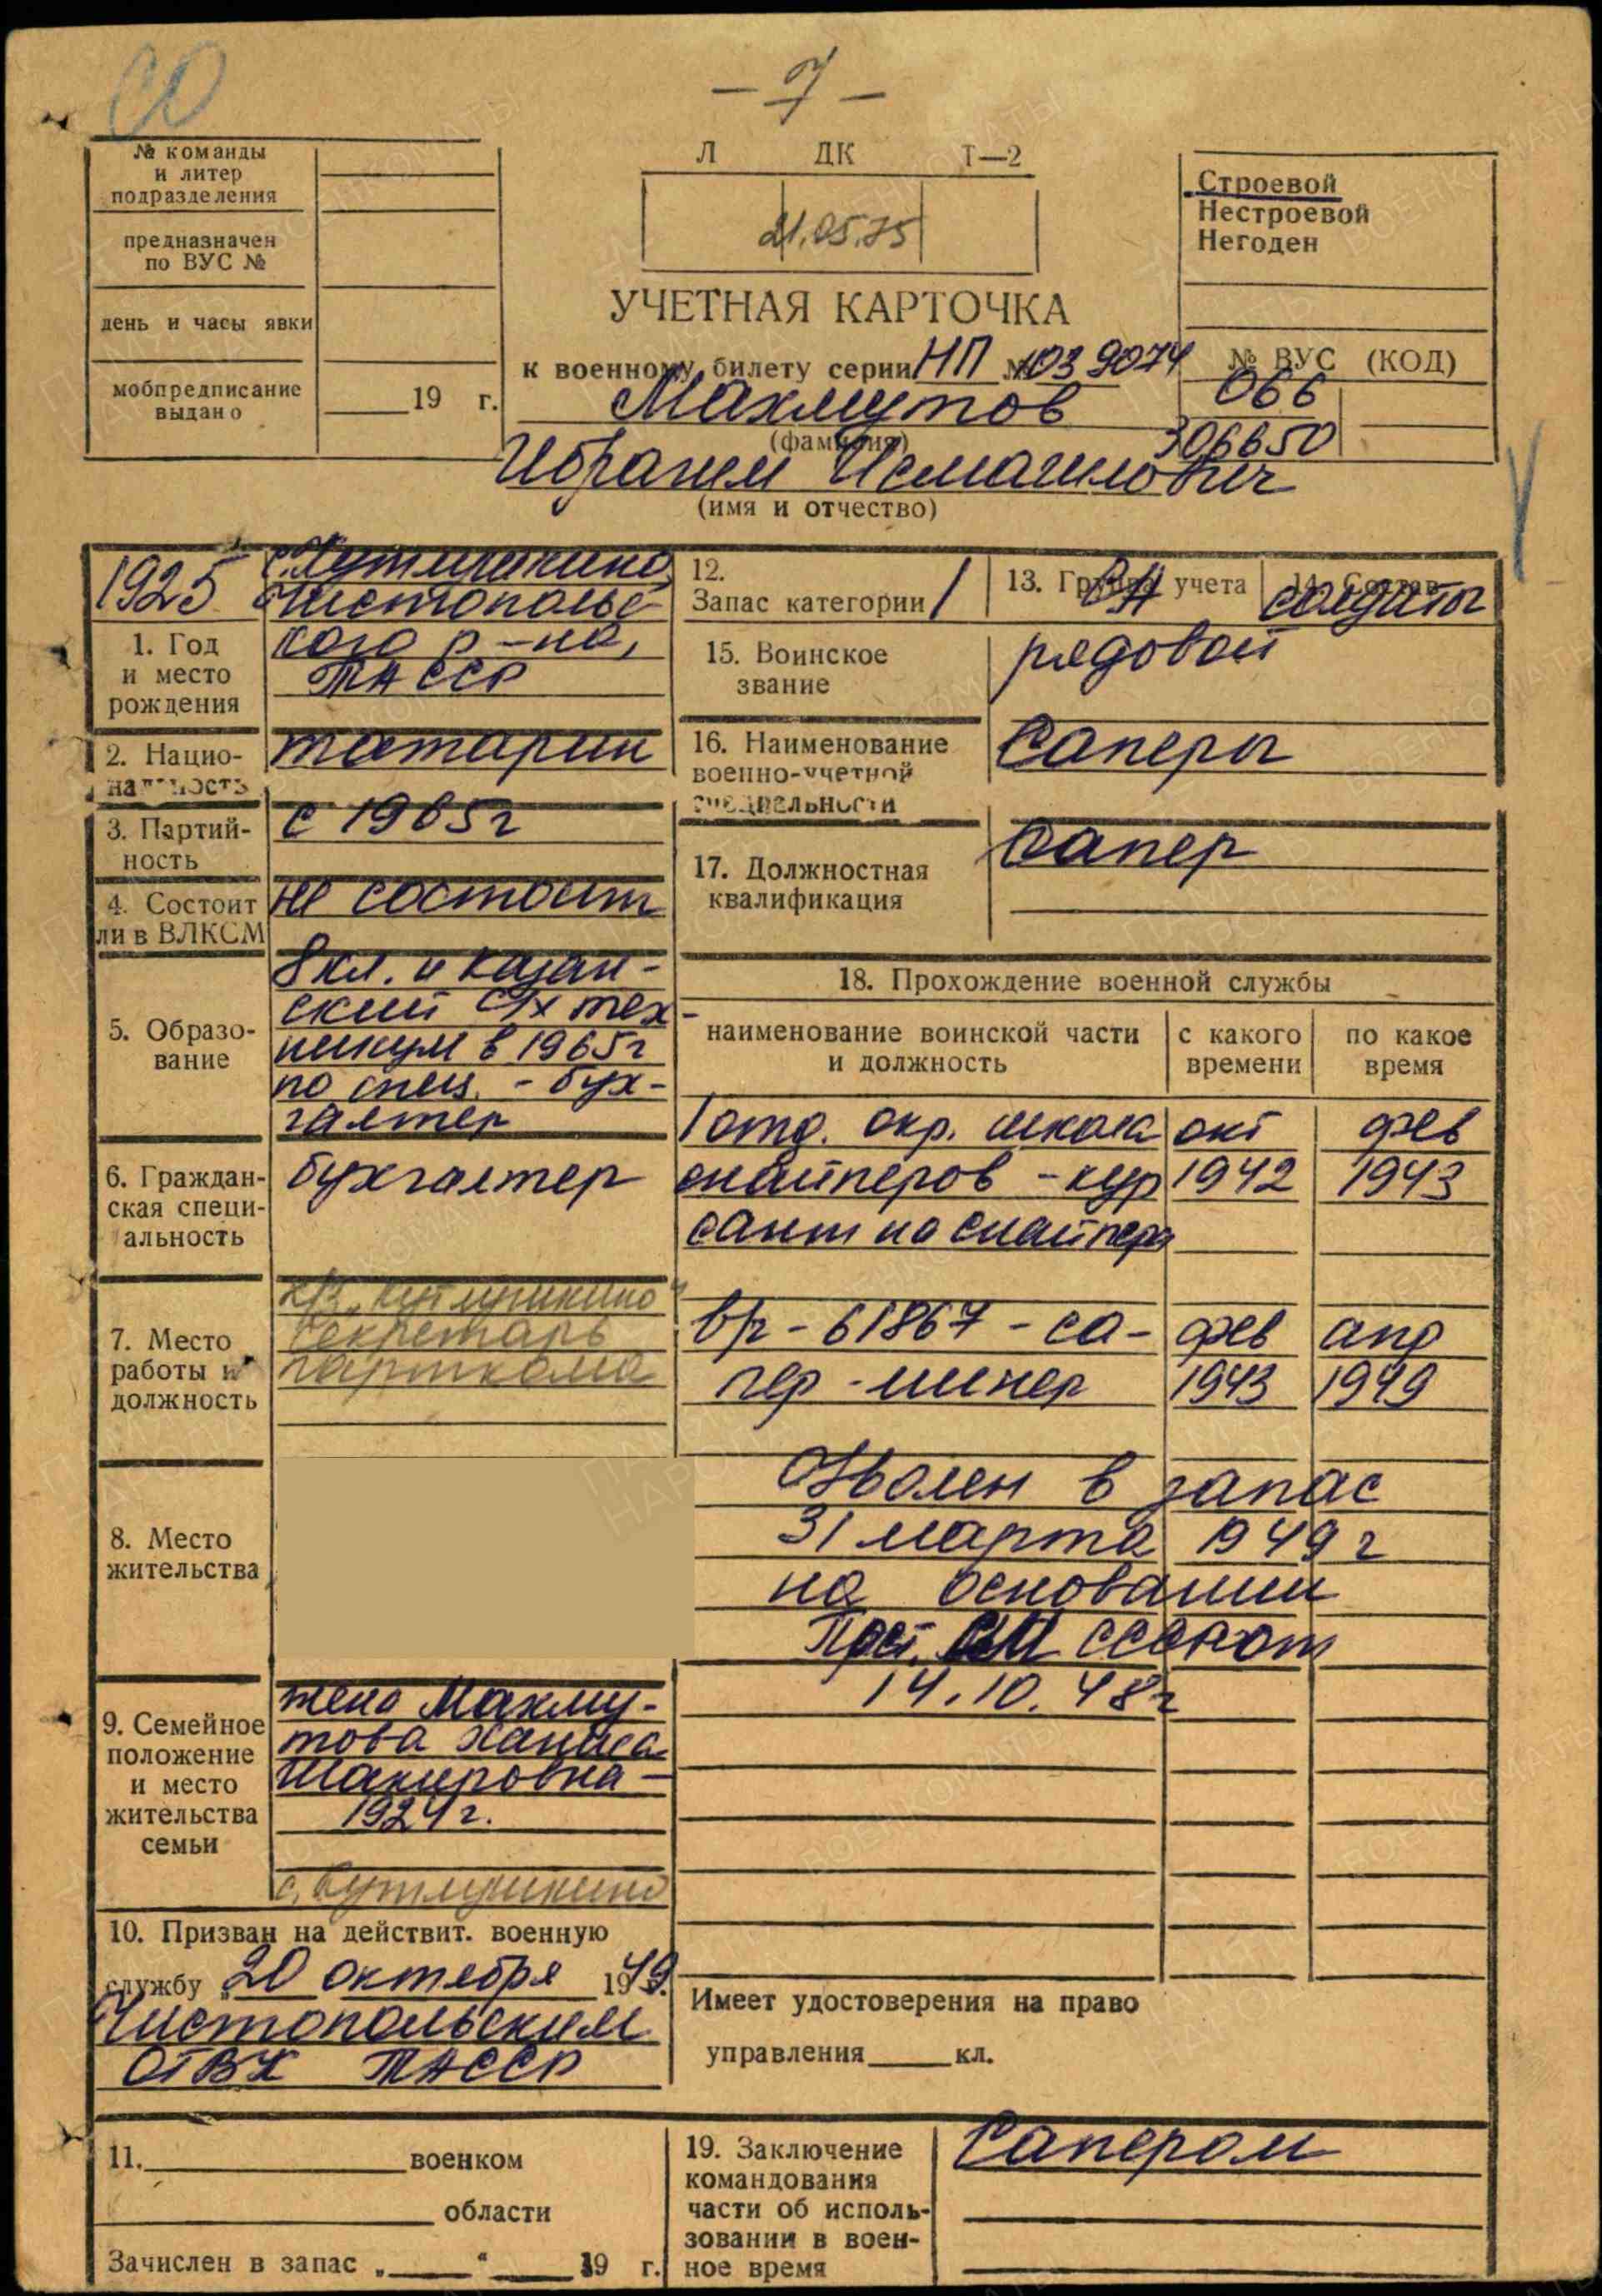 - 7 -
№ команды
и литер
подразделения
предназначен
по ВУС №
день и часы явки
мобпредписание
выдано
19 г.
Л ДК Т—2
21.05.75
Строевой
Нестроевой
Негоден
УЧЕТНАЯ КАРТОЧКА
к военному билету серии НП № 1039074
№ ВУС (КОД)
066
306650
Махмутов
(фамилия)
Ибрагим Исмагилович
(имя и отчество)
1925
с. Кутлушкино
Чистопольс-
кого р-на,
ТАССР
1. Год
и место
рождения
2. Нацио-
нальность
татарин
3. Партий-
ность
с 1965г
4. Состоит
ли в ВЛКСМ
не состоит
5. Образо-
вание
8 кл. и Казан-
ский с/х тех-
никум в 1965г
по спец. - бух-
галтер
6. Граждан-
ская специ-
альность
бухгалтер
7. Место
работы и
должность
к/з „Кутлушкино“
секретарь
парткома
8. Место
жительства
9. Семейное
положение
и место
жительства
семьи
жена Махму-
това
Шакировна -
1924г.
с. Кутлушкино
10. Призван на действит. военную
службу 20 октября 1949.
Чистопольским
ОГВК ТАССР
11. военком
области
Зачислен в запас „ “ 19 г.
12.
Запас категории 1
13. Группа учета
14. Состав
солдаты
15. Воинское
звание
рядовой
16. Наименование
военно-учетной
специальности
Саперы
17. Должностная
квалификация
Сапер
18. Прохождение военной службы
наименование воинской части
и должность
с какого
времени
по какое
время
1 отд. окр. школа окт фев
снайперов - кур 1942 1943
сант на снайпера
в/ч - 61867 - са- фев апр
пер - минер 1943 1949
Уволен в запас
31 марта 1949 г
на основании
Пост. СМ СССР от
14.10.48г
Имеет удостоверения на право
управления кл.
19. Заключение
командования
части об исполь-
зовании в воен-
ное время
Сапером